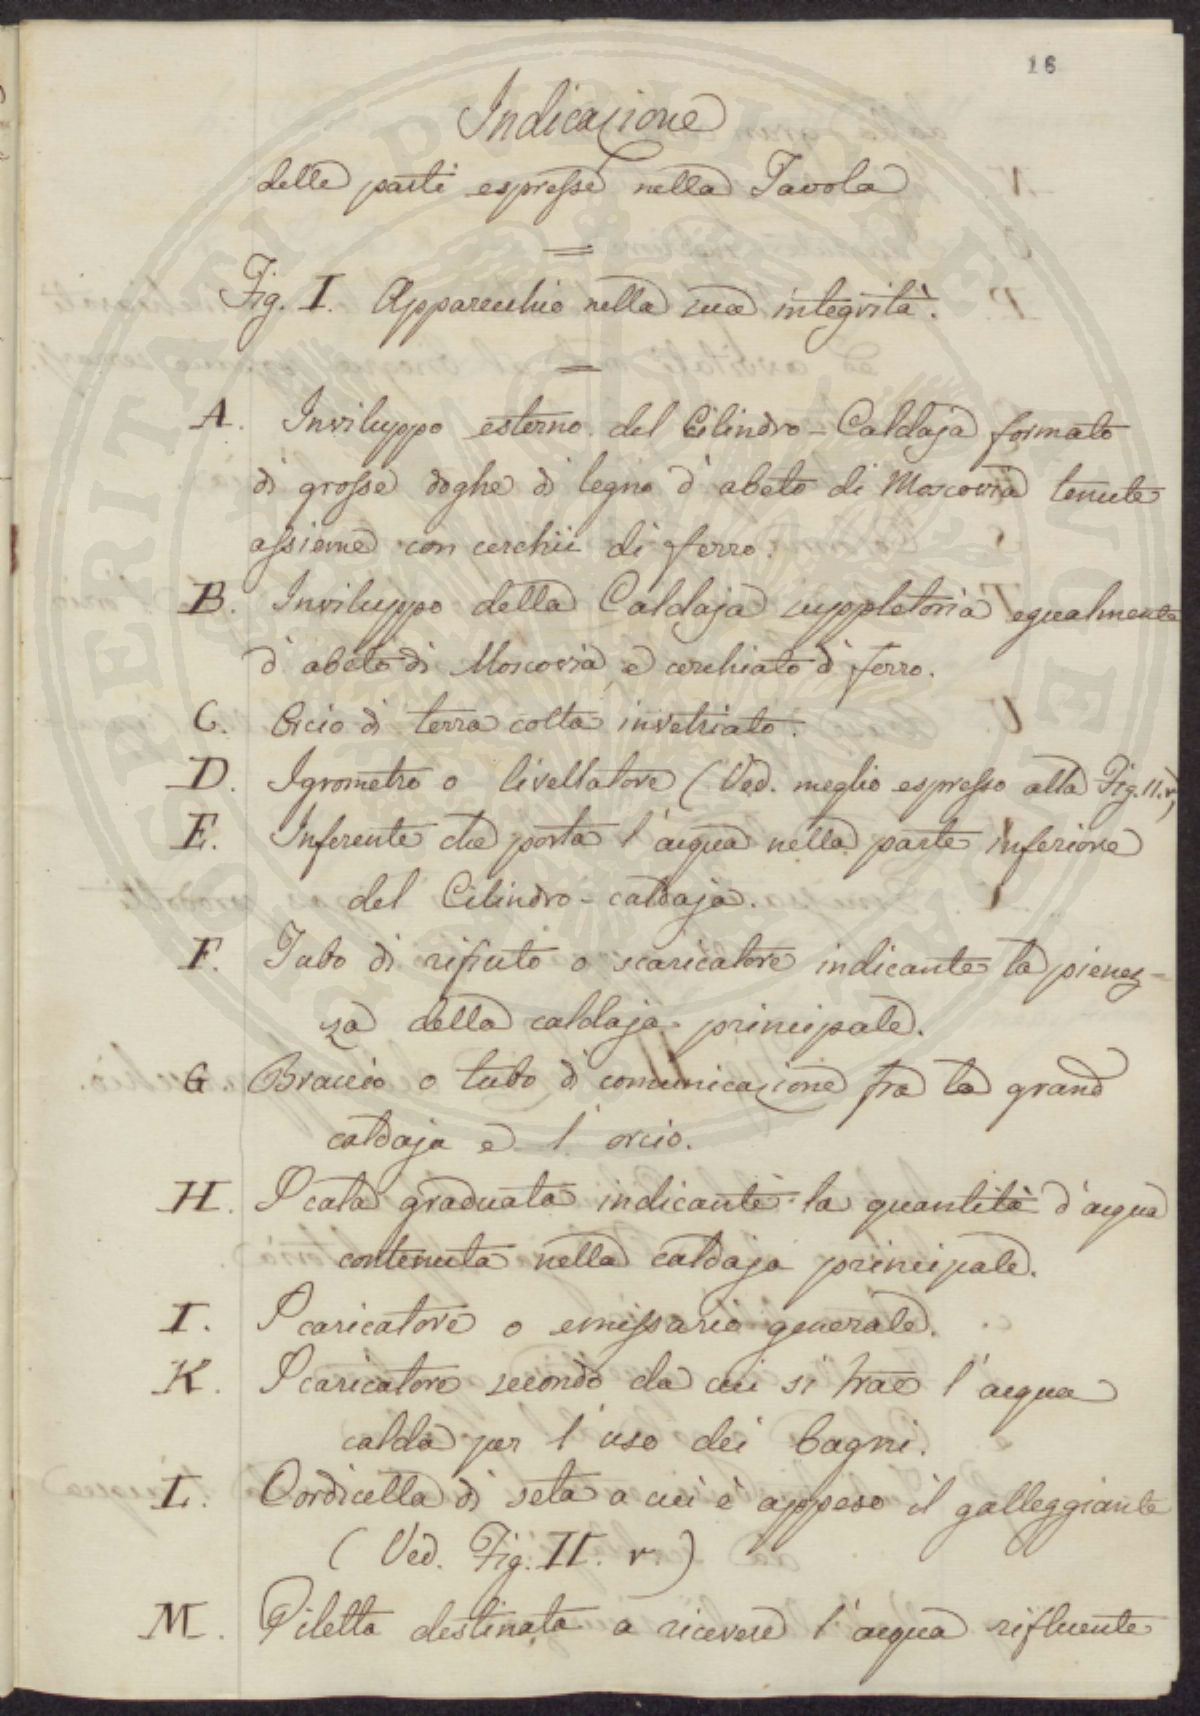 16
Indicazione
delle parti espresse nella Tavola
Fig. I. Apparecchio nella sua integrità.
A. Inviluppo esterno del Cilindro-Caldaja formato
di grosse doghe di legno d'abeto di Moscovia tenute
assieme con cerchii di ferro.
B. Inviluppo della Caldaja suppletoria egualmente
d'abeto di Moscovia e cerchiato di ferro.
C. Orcio di terra cotta invetriato.
D. Igrometro o livellatore (Ved. meglio espresso alla Fig. II. r)
E. Inferente che porta l'acqua nella parte inferiore
del Cilindro-caldaja.
F. Tubo di rifiuto o scaricatore indicante la pienez-
za della caldaja principale.
G Braccio o tubo di comunicazione fra la grand
caldaja e l'orcio.
H. Scala graduata indicante la quantità d'acqua
contenuta nella caldaja principale.
I. Scaricatore o emissario generale.
K. Scaricatore secondo da cui si trae l'acqua
calda per l'uso dei bagni.
L. Cordicella di seta a cui è appeso il galleggiante
(Ved. Fig. II. r)
M. Piletta destinata a ricevere l'acqua rifluente